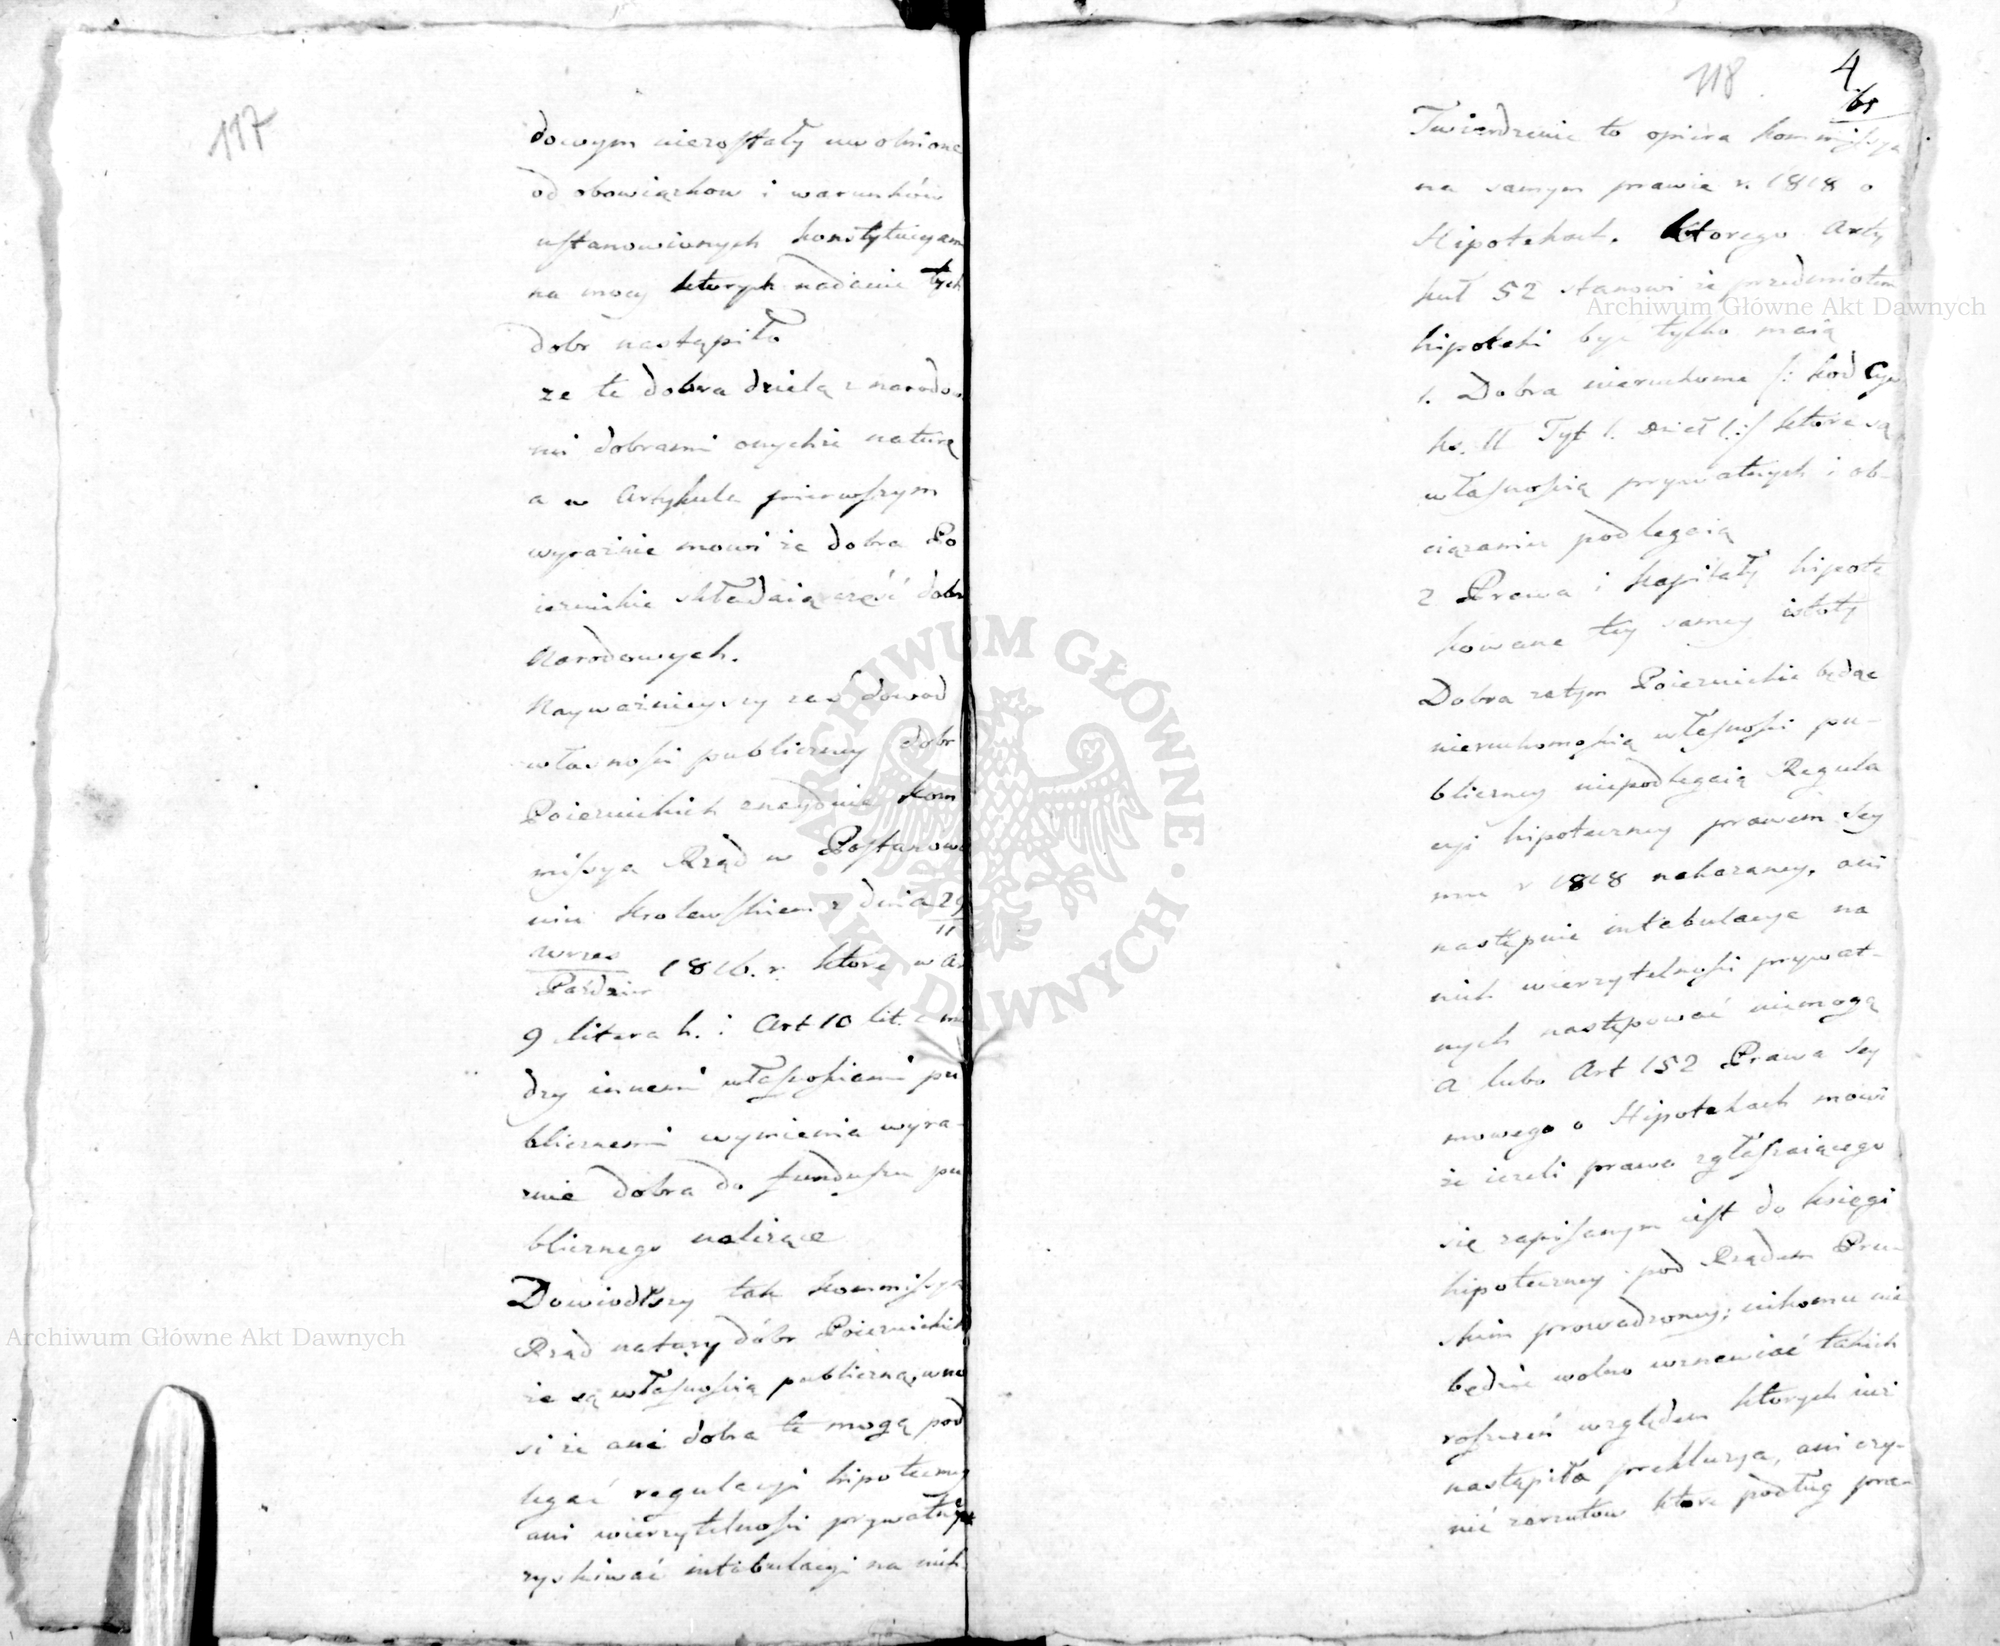 117
dowym niezostały uwolnione
od obowiązkow i warunków
ustanowionych konstytucyam
na mocy ktorych nadanie tych
dobr nastąpiło
ze te dobra dzielą z narodo
mi dobrami onychże naturę
a w Artykule pierwszym
wyraźnie mowi że dobra Po
iezuickie składaią część dobr
Narodowych.
Nayważnieyszy zaś dowod
własności publiczney dobr
Poiezuickich znayduie Kom
missya Rząd w Postanowi
niu Krolewskiem z dnia 29
11
Wrześ
Paździer 1816. r. ktore w Ar
9 litera h. i Art 10 lit. c mię
dzy innemi własnościami pu
blicznemi wymienia wyra-
źnie dobra do funduszu pu
blicznego należące
Dowiodłszy tak Kommissya
Rząd natury dóbr Poiezuickich
że są własnością publiczną, wno
si że ani dobra te mogą pod
legać regulacyi hipoteczney
ani wierzytelności prywatne
zyskiwać intabulacyi na nich.
118
4
Twierdzenie to opiera Kommissya
na samym prawie r. 1818 o
Hipotekach. Ktorego Arty
kuł 52 stanowi że przedmiotem
hipoteki być tylko maią
1. Dobra nieruchome /: Kod Cyw
ks. II Tyt 1. Dział 1 :/ które są
własnością prywatnych i ob-
ciążaniu podlegaią
2 Prawa i kapitały hipote
kowane tey samey istoty
Dobra zatym Poiezuickie będąc
nieruchomością własności pu-
bliczney niepodlegaią Regula
cyi hipoteczney prawem Sey
mu r 1818 nakazaney, ani
następnie intabulacye na
nich wierzytelności prywat-
nych następować niemogą
A lubo Art 152 Prawa Sey
mowego o Hipotekach mowi
że ieżeli prawo zgłaszaiącego
się zapisanym iest do księgi
hipoteczney pod Rządem Pru-
skim prowadzoney; nikomu nie
będzie wolno wznawiać takich
roszczeń względem ktorych iuż
nastąpiła prekluzya, ani czy-
nić zarzutow ktore podług pra-
Archiwum Główne Akt Dawnych
Archiwum Główne Akt Dawnych
ARCHIWUM GŁÓWNE · AKT DAWNYCH ·